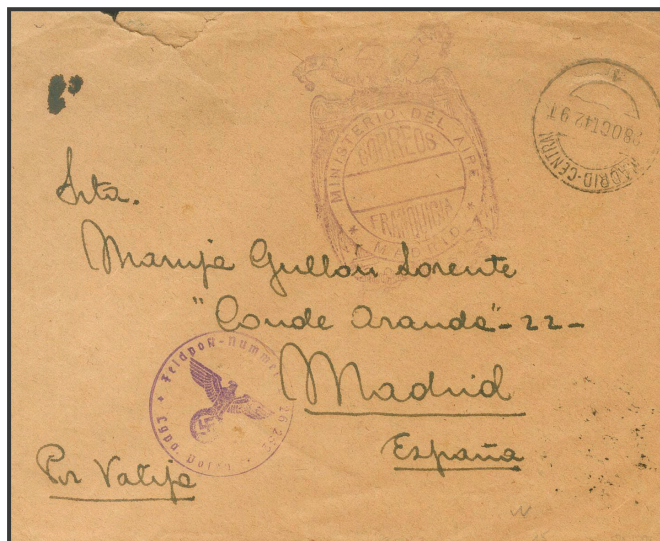 MINISTERIO DEL AIRE
CORREOS
FRANQUICIA
MADRID-CENTRAL
28 OCT 42
Srta.
Maruja Gullon Lorente
"Conde Aranda"-22-
Madrid
España
Feldpost-Nummer
Por Valija